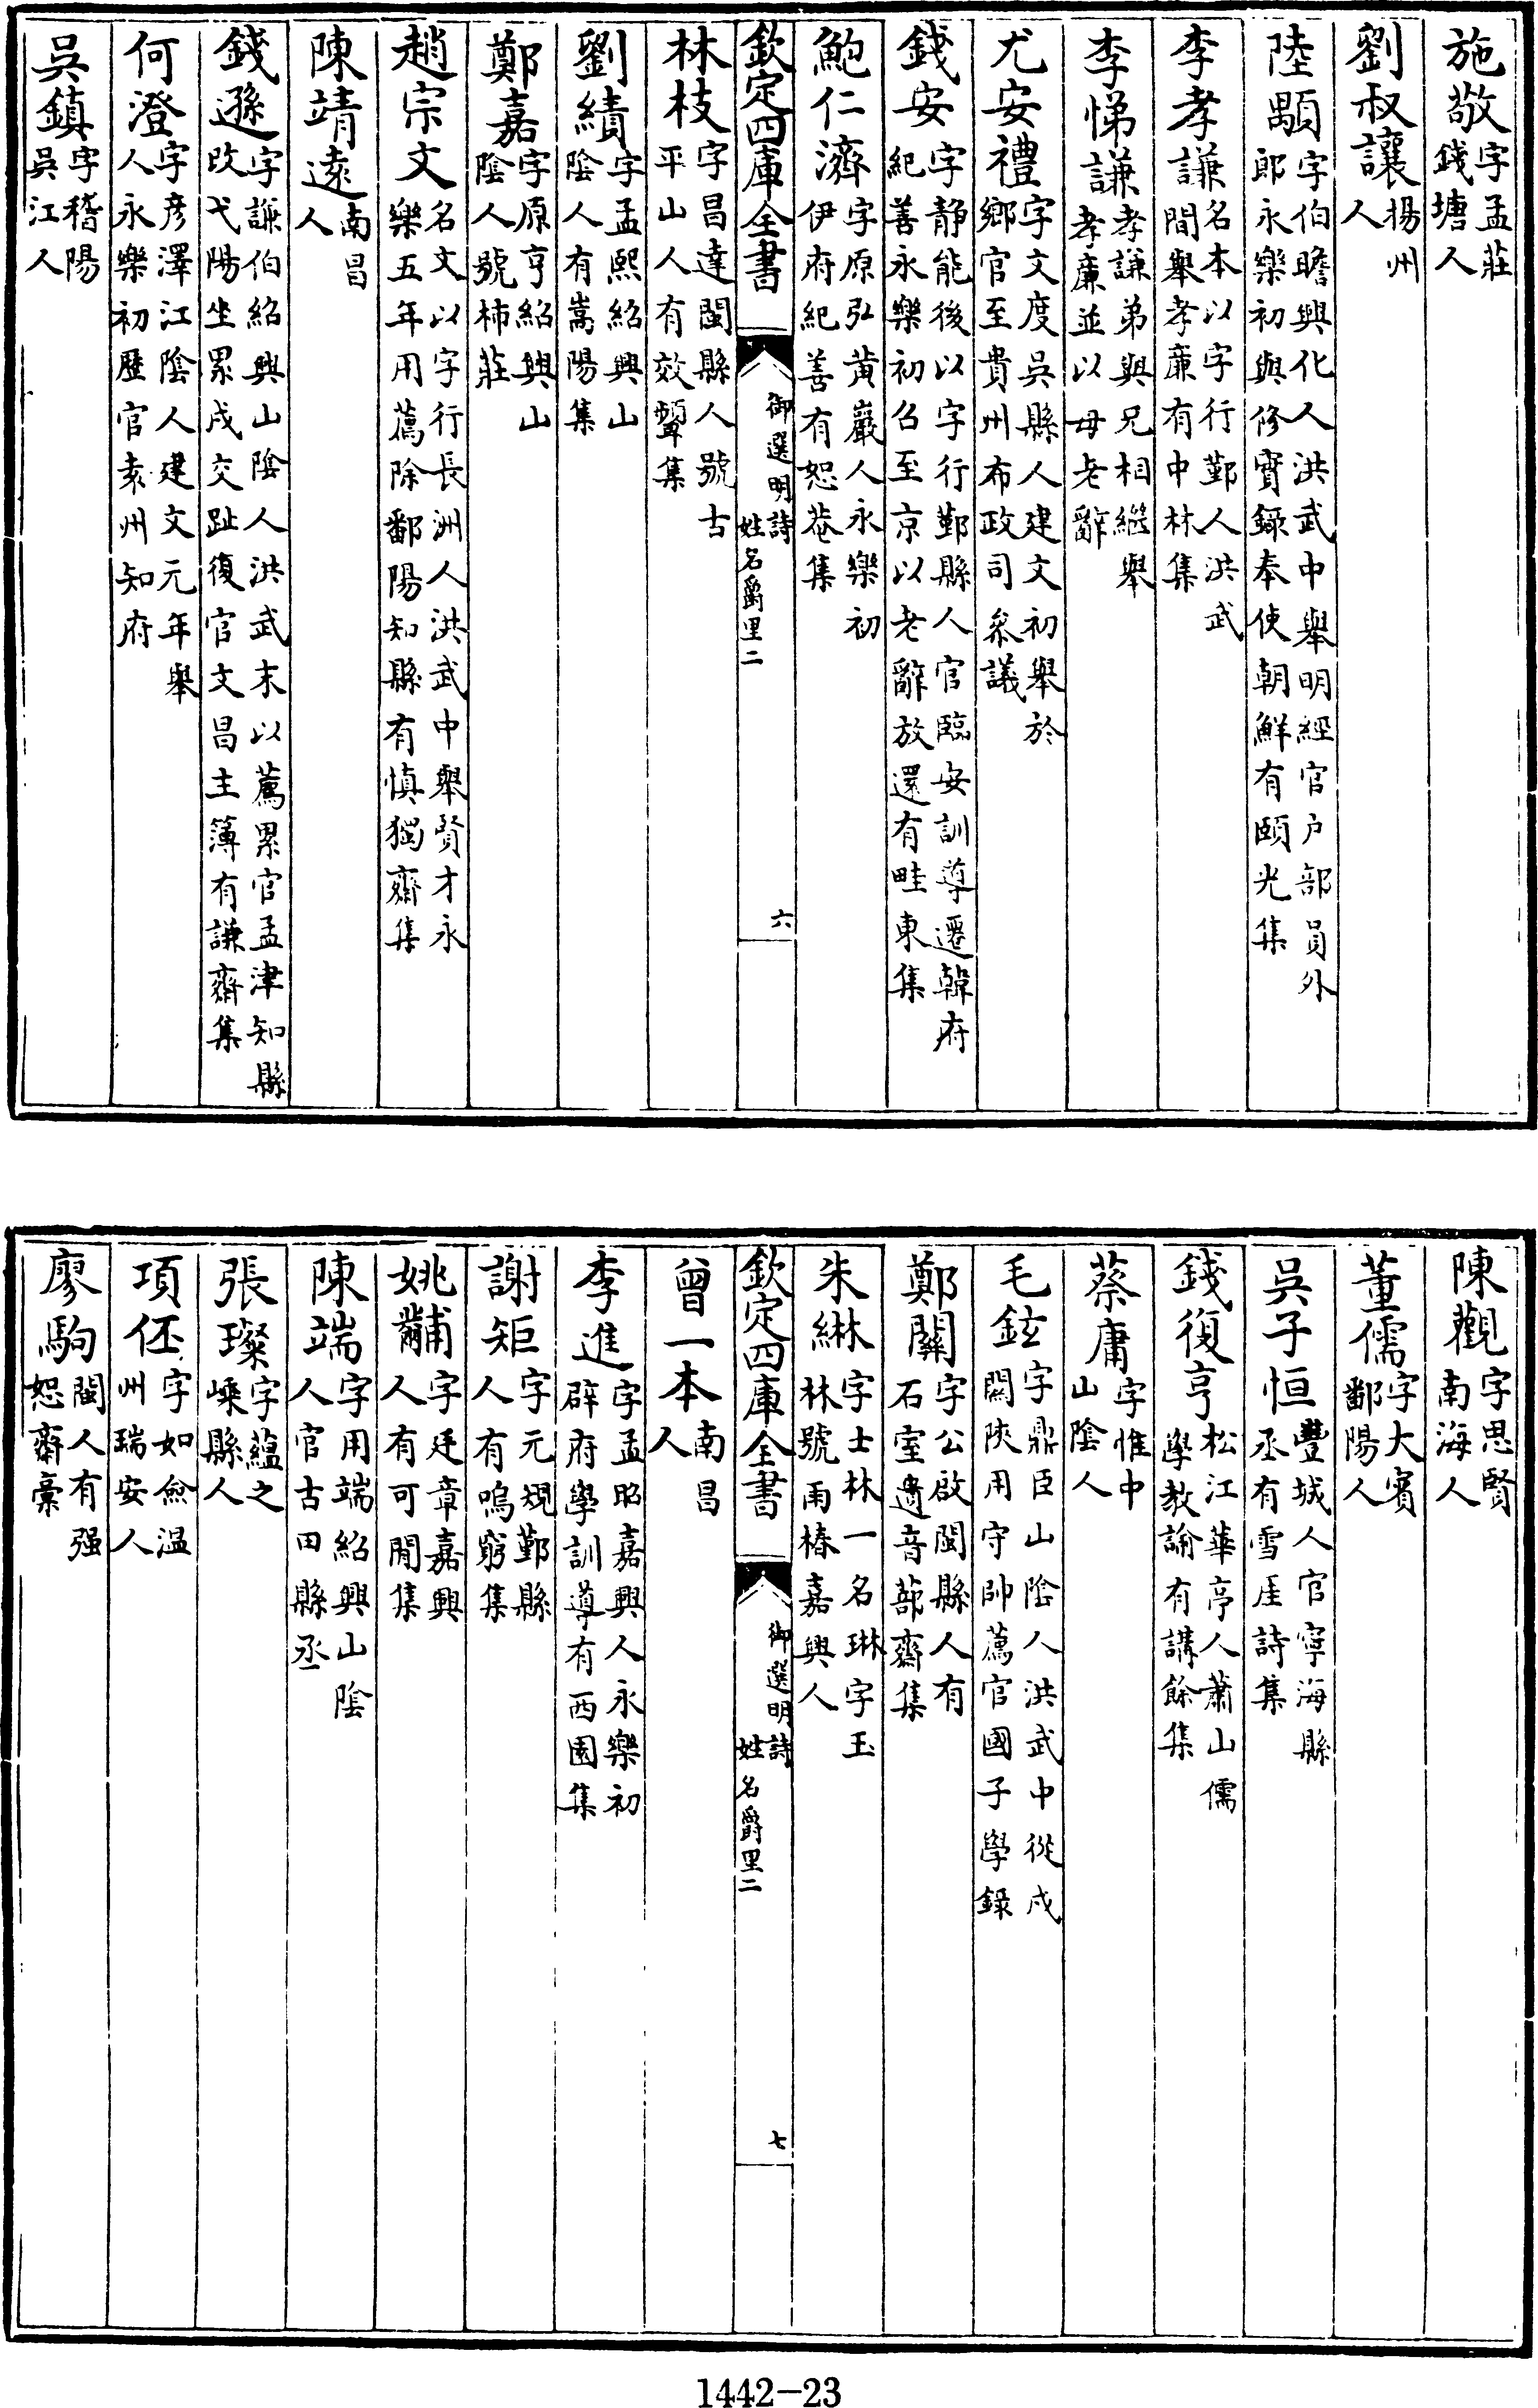 施敬字孟莊錢塘人
劉叔讓揚州人
陸顒字伯瞻興化人洪武中舉明經官户部員外郎永樂初與修實録奉使朝鮮有頤光集
李孝謙名本以字行鄞人洪武間舉孝廉有中林集
李悌謙孝謙弟與兄相繼舉孝廉並以母老辭
尤安禮字文度吳縣人建文初舉於鄉官至貴州布政司叅議
錢安字静能後以字行鄞縣人官臨安訓導遷韓府紀善永樂初召至京以老辭放還有畦東集
鮑仁濟字原弘黄巖人永樂初伊府紀善有恕菴集
欽定四庫全書
御選明詩姓名爵里二
六
林枝字昌達閩縣人號古平山人有效顰集
劉績字孟熙紹興山陰人有嵩陽集
鄭嘉字原亨紹興山陰人號柿莊
趙宗文名文以字行長洲人洪武中舉賢才永樂五年用薦除鄱陽知縣有慎獨齋集
陳靖遠南昌人
錢遜字謙伯紹興山陰人洪武末以薦累官孟津知縣改弋陽坐累戍交趾復官文昌主簿有謙齋集
何澄字彦澤江陰人建文元年舉人永樂初歷官袁州知府
吳鎮字稽陽吳江人
陳觀字思賢南海人
董儒字大賓鄱陽人
吳子恒豐城人官寧海縣丞有雪厓詩集
錢復亨松江華亭人蕭山儒學教諭有講餘集
蔡庸字惟中山陰人
毛鉉字鼎臣山陰人洪武中從戍關陝用守帥薦官國子學録
鄭關字公啟閩縣人有石室遺音蔀齋集
朱綝字士林一名琳字玉林號雨椿嘉興人
欽定四庫全書
御選明詩姓名爵里二
七
曾一本南昌人
李進字孟昭嘉興人永樂初辟府學訓導有西園集
謝矩字元規鄞縣人有鳴窮集
姚黼字廷章嘉興人有可閒集
陳端字用端紹興山陰人官古田縣丞
張璨字藴之嵊縣人
項伾字如僉温州瑞安人
廖駒閩人有强恕齋稾
1442-23